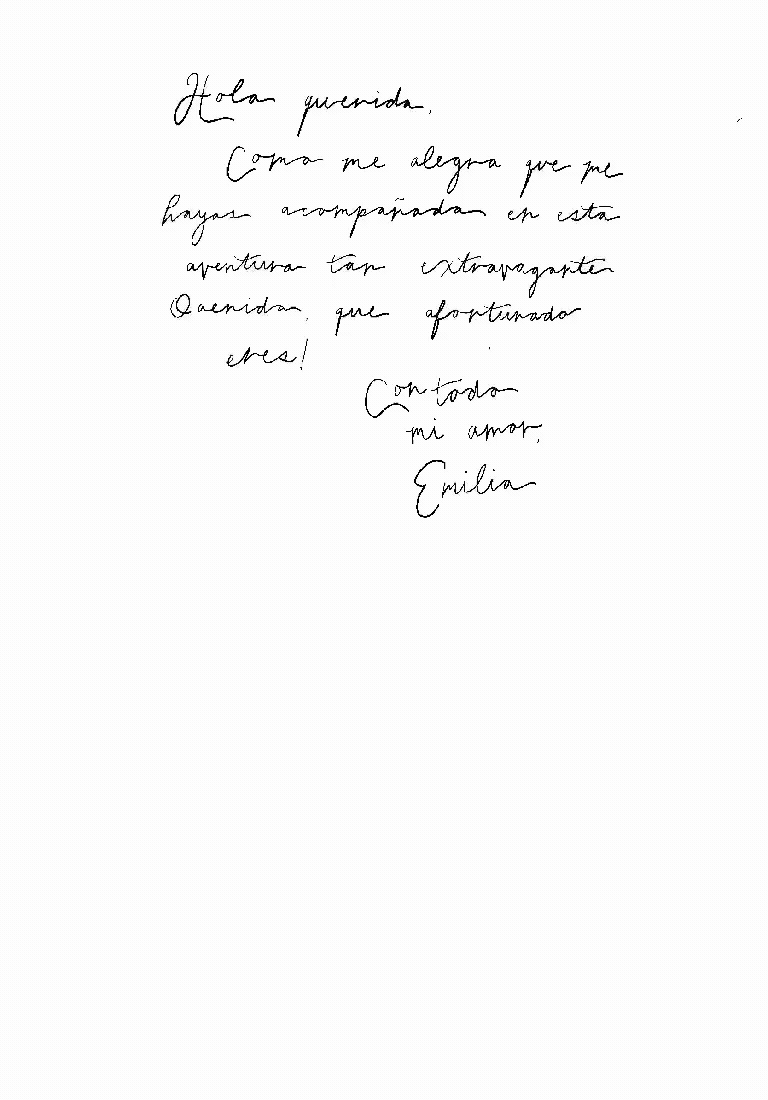 Hola querida,
Como me alegra que me
hayas acompañada en esta
aventura tan extravagante
Querida, que afortunado
eres!
Con todo
mi amor,
Emilia